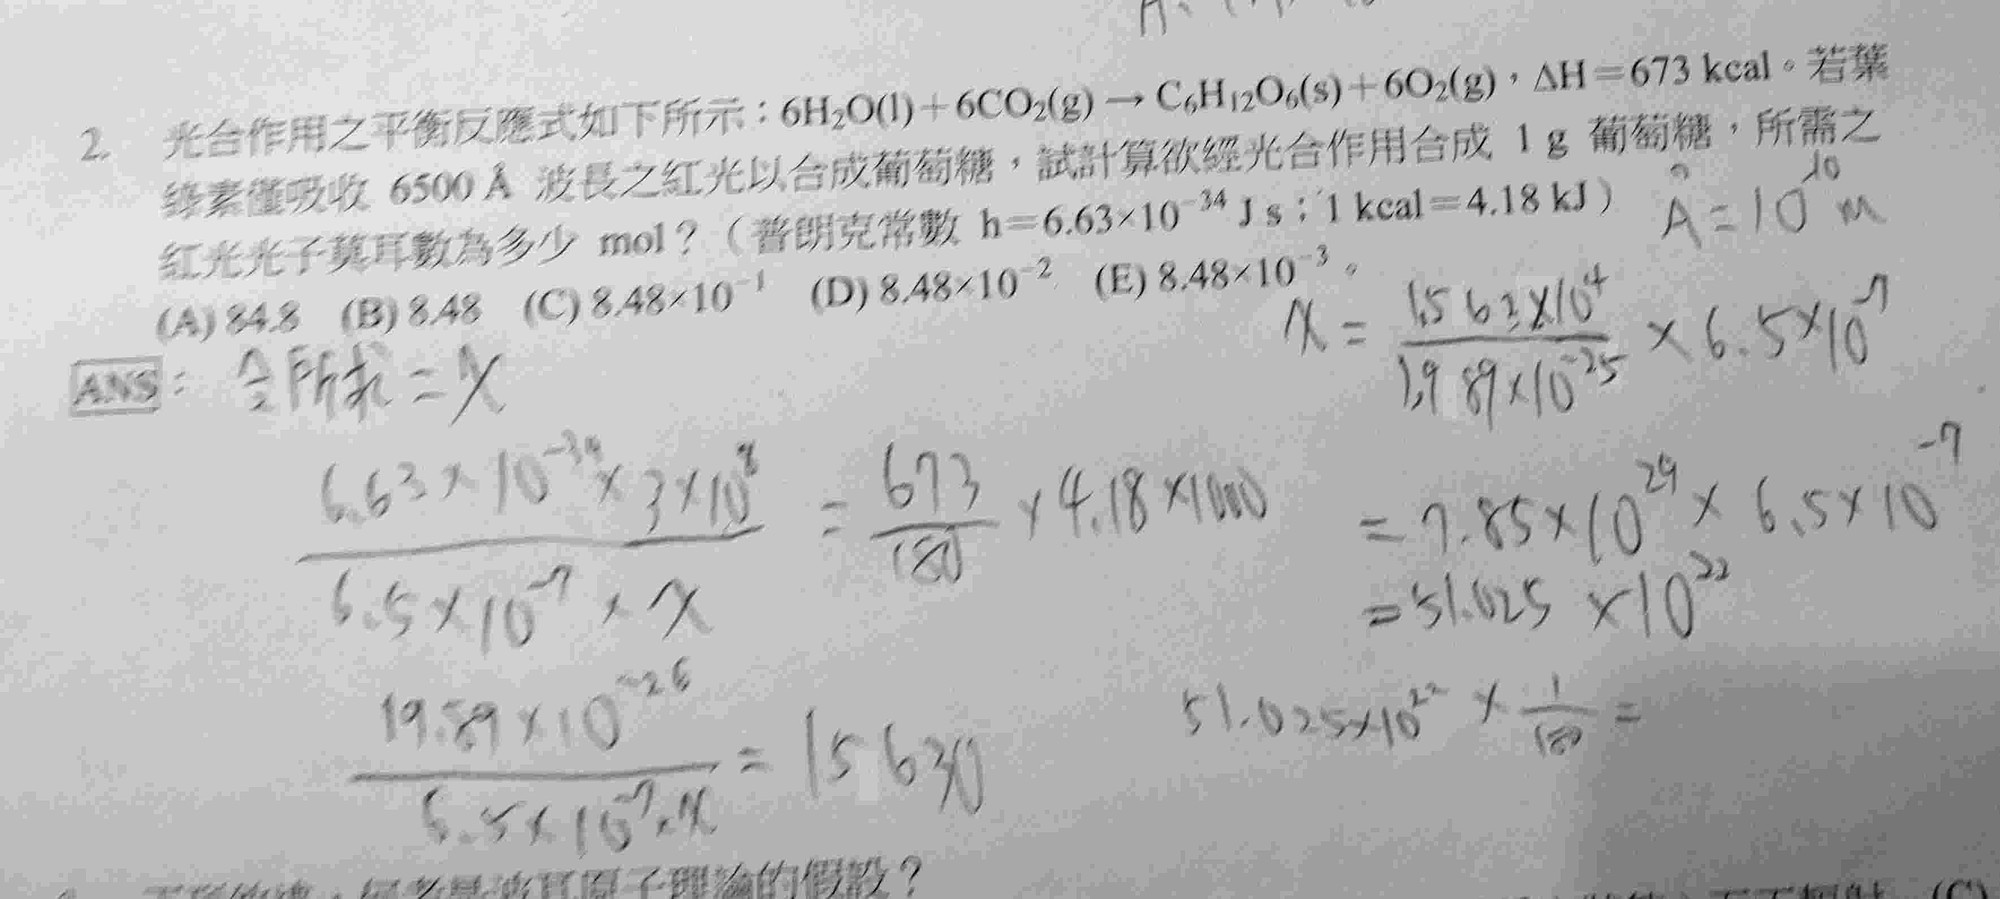 2. 光合作用之平衡反應式如下所示：6H₂O(l)+6CO₂(g)→C₆H₁₂O₆(s)+6O₂(g)，ΔH=673 kcal。若葉
綠素僅吸收 6500 Å 波長之紅光以合成葡萄糖，試計算欲經光合作用合成 1 g 葡萄糖，所需之
紅光光子莫耳數為多少 mol？（普朗克常數 h=6.63×10⁻³⁴ J s；1 kcal=4.18 kJ）
Å=10⁻¹⁰ m
(A) 84.8 (B) 8.48 (C) 8.48×10⁻¹ (D) 8.48×10⁻² (E) 8.48×10⁻³。
ANS：令所求=x
6.63×10⁻³⁴×3×10⁸ / 6.5×10⁻⁷×x = 673/180 ×4.18×1000
19.89×10⁻²⁶ / 6.5×10⁻⁷×x = 15630
x = 1.563×10⁴ / 1.989×10⁻²⁵ × 6.5×10⁻⁷
=7.85×10²⁹×6.5×10⁻⁷
=51.025×10²²
51.025×10²² × 1/180 =
原子理論的假設？
(C)